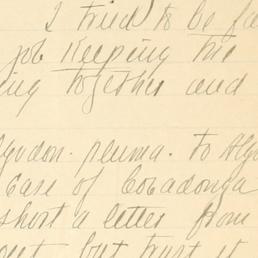 I tried to be fa
job keeping the
ing together and
godon-pluma. To Algo
Case of Cobadonga
short a letter from
out, but trust it